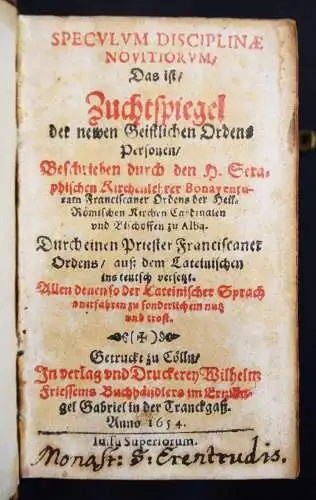 SPECVLVM DISCIPLINÆ
NOVITIORVM/
Das ist/
Zuchtspiegel
der newen Geistlichen Ordens
Personen/
Beschrieben durch den H. Sera-
phischen Kirchenlehrer Bonaventu-
ram Franciscaner Ordens der Heil.
Römischen Kirchen Cardinalen
vnd Bischoffen zu Alba.
Durch einen Priester Franciscaner
Ordens/ auß dem Lateinischen
ins teutsch versetzt.
Allen denen so der Lateinischer Sprach
vnerfahren zu sonderlichem nutz
vnd trost.
(✠)
Getruckt zu Cölln/
In verlag vnd Druckerey Wilhelm
Friessems Buchhändlers im Ertz En-
gel Gabriel in der Tranckgaß.
Anno 1654.
Iussu Superiorum.
Monast: S. Erentrudis.